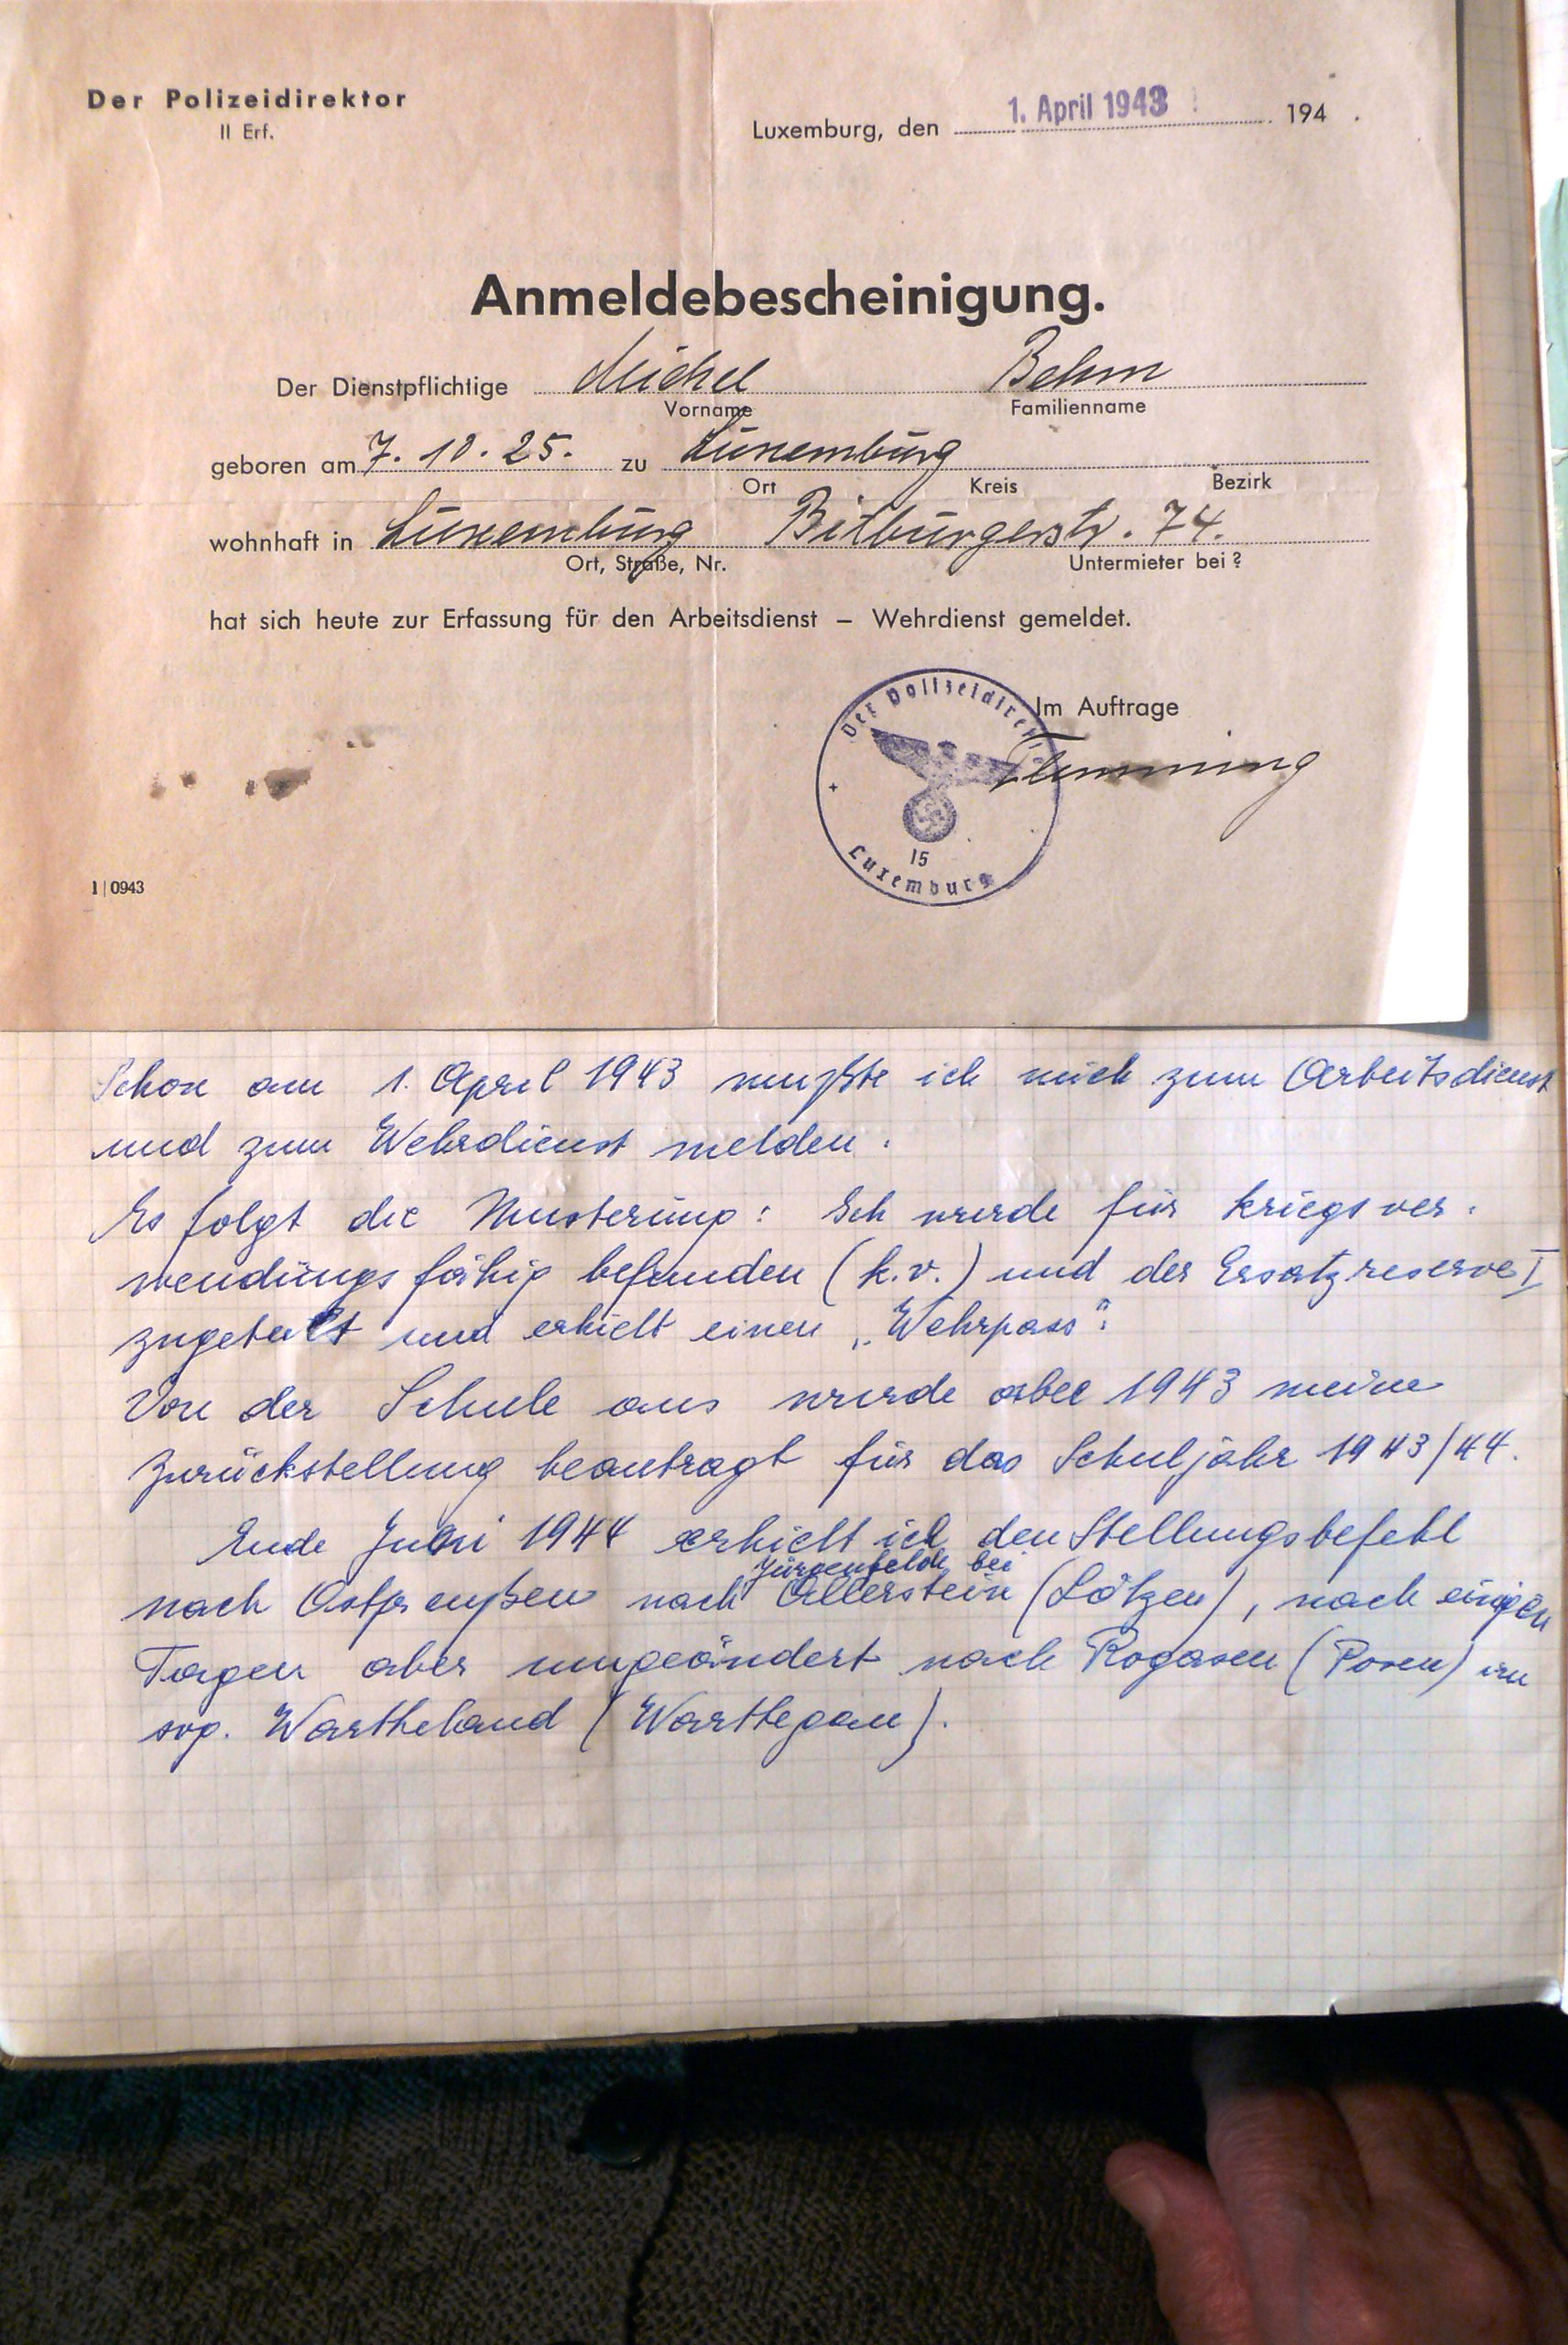 Der Polizeidirektor
II Erf.
Luxemburg, den 1. April 1943 194 .
Anmeldebescheinigung.
Der Dienstpflichtige Michel Behm
Vorname Familienname
geboren am 7. 10. 25. zu Luxemburg
Ort Kreis Bezirk
wohnhaft in Luxemburg Bitburgerstr. 74.
Ort, Straße, Nr. Untermieter bei?
hat sich heute zur Erfassung für den Arbeitsdienst – Wehrdienst gemeldet.
Im Auftrage
Flemming
Der Polizeidirek
15
Luxemburg
1|0943
Schon am 1. April 1943 mußte ich mich zum Arbeitsdienst
und zum Wehrdienst melden.
Es folgt die Musterung: Ich wurde für kriegsver-
wendungsfähig befunden (k.v.) und der Ersatzreserve I
zugeteilt und erhielt einen „Wehrpass".
Von der Schule aus wurde aber 1943 meine
Zurückstellung beantragt für das Schuljahr 1943/44.
Ende Juni 1944 erhielt ich den Stellungsbefehl
Jürgenfelde bei
nach Ostpreußen nach Allerstein (Lötzen), nach einigen
Tagen aber umgeändert nach Rogasen (Posen) im
sog. Wartheland (Warthegau).